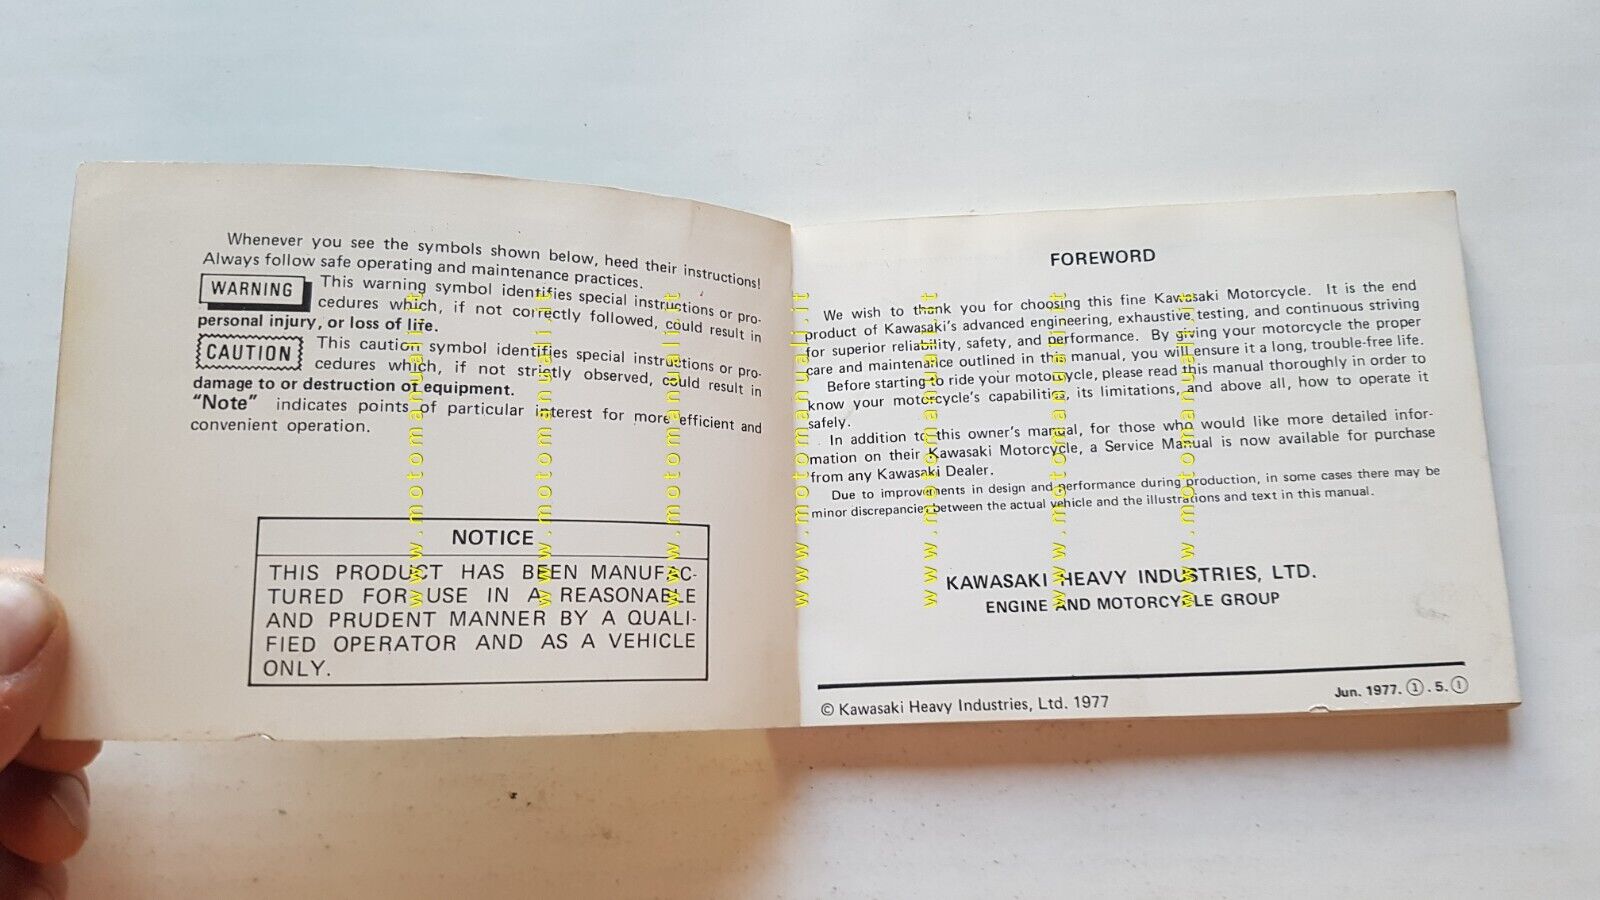 Whenever you see the symbols shown below, heed their instructions!
Always follow safe operating and maintenance practices.
WARNING This warning symbol identifies special instructions or pro-
cedures which, if not correctly followed, could result in
personal injury, or loss of life.
CAUTION This caution symbol identifies special instructions or pro-
cedures which, if not strictly observed, could result in
damage to or destruction of equipment.
"Note" indicates points of particular interest for more efficient and
convenient operation.
NOTICE
THIS PRODUCT HAS BEEN MANUFAC-
TURED FOR USE IN A REASONABLE
AND PRUDENT MANNER BY A QUALI-
FIED OPERATOR AND AS A VEHICLE
ONLY.
FOREWORD
We wish to thank you for choosing this fine Kawasaki Motorcycle. It is the end
product of Kawasaki's advanced engineering, exhaustive testing, and continuous striving
for superior reliability, safety, and performance. By giving your motorcycle the proper
care and maintenance outlined in this manual, you will ensure it a long, trouble-free life.
Before starting to ride your motorcycle, please read this manual thoroughly in order to
know your motorcycle's capabilities, its limitations, and above all, how to operate it
safely.
In addition to this owner's manual, for those who would like more detailed infor-
mation on their Kawasaki Motorcycle, a Service Manual is now available for purchase
from any Kawasaki Dealer.
Due to improvements in design and performance during production, in some cases there may be
minor discrepancies between the actual vehicle and the illustrations and text in this manual.
KAWASAKI HEAVY INDUSTRIES, LTD.
ENGINE AND MOTORCYCLE GROUP
© Kawasaki Heavy Industries, Ltd. 1977
Jun. 1977. ①. 5. ①
www.motomanuali.it
www.motomanuali.it
www.motomanuali.it
www.motomanuali.it
www.motomanuali.it
www.motomanuali.it
www.motomanuali.it